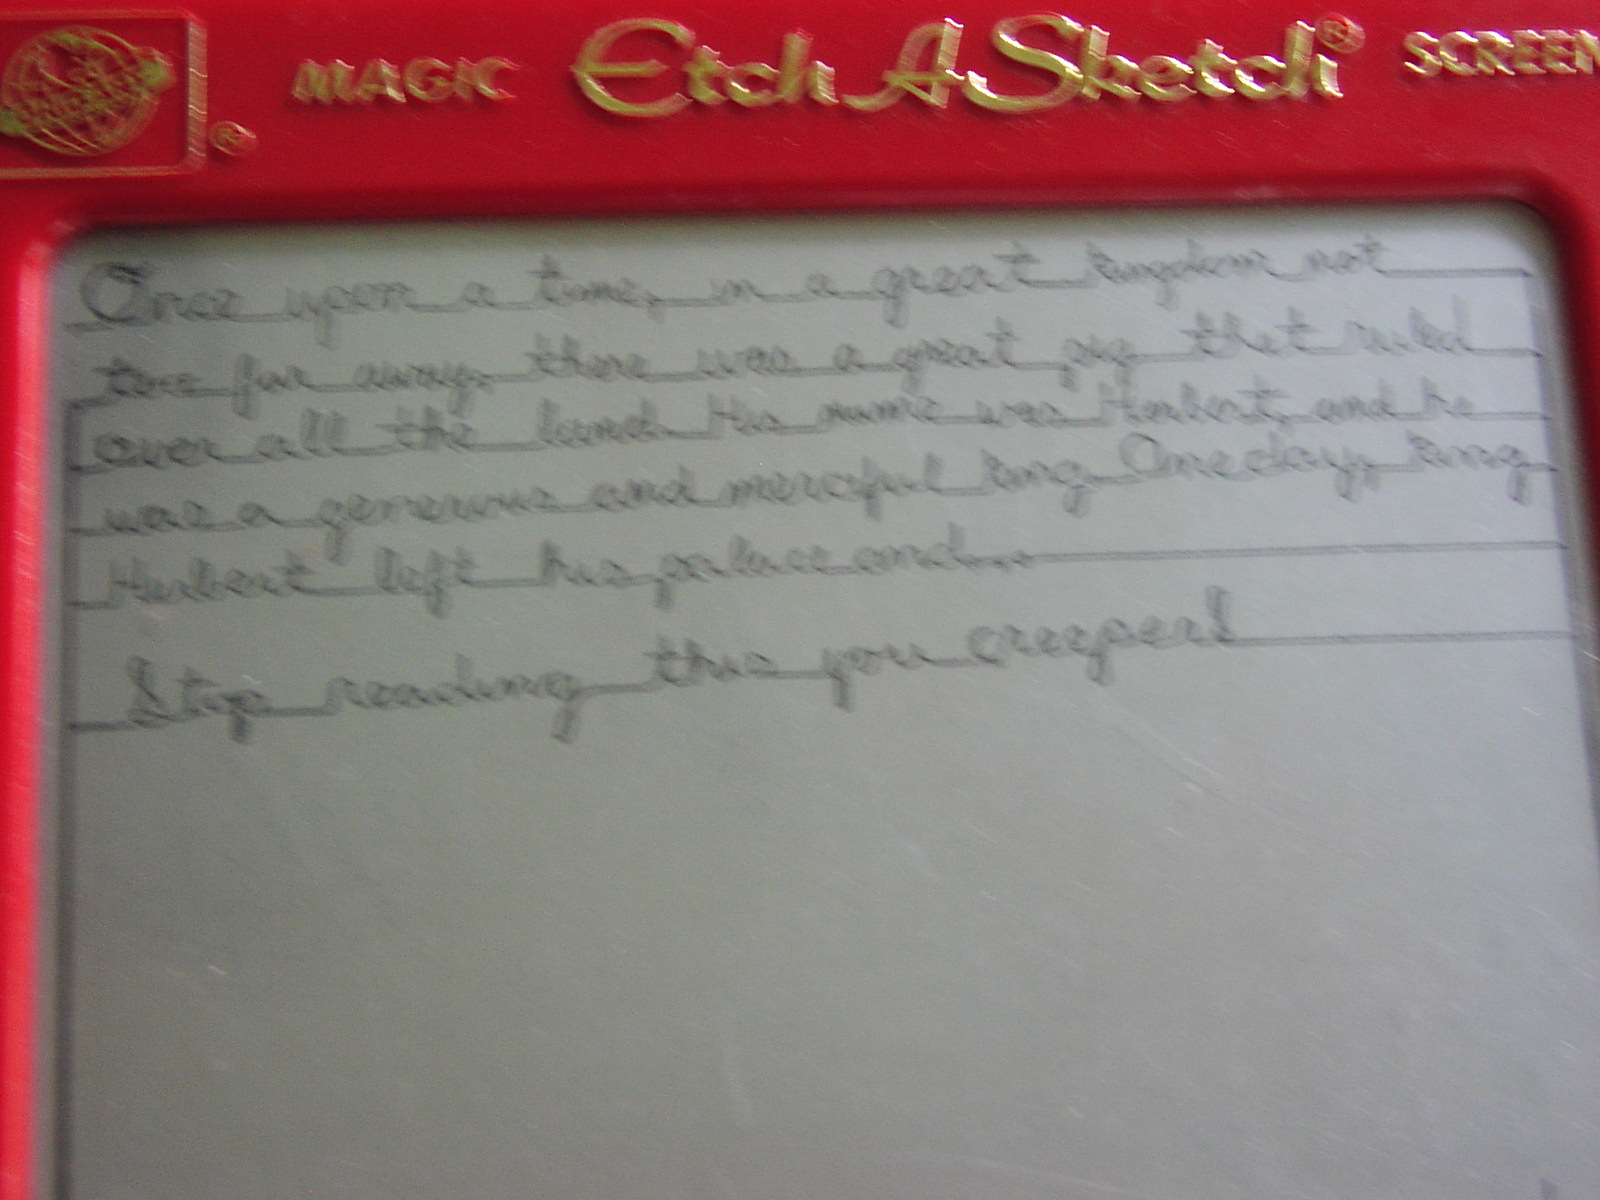 MAGIC Etch A Sketch® SCREEN
®
Once upon a time, in a great kingdom not
too far away, there was a great pig that ruled
over all the land. His name was Herbert, and he
was a generous and merciful king. One day, king
Herbert left his palace and...
Stop reading this you creeper!